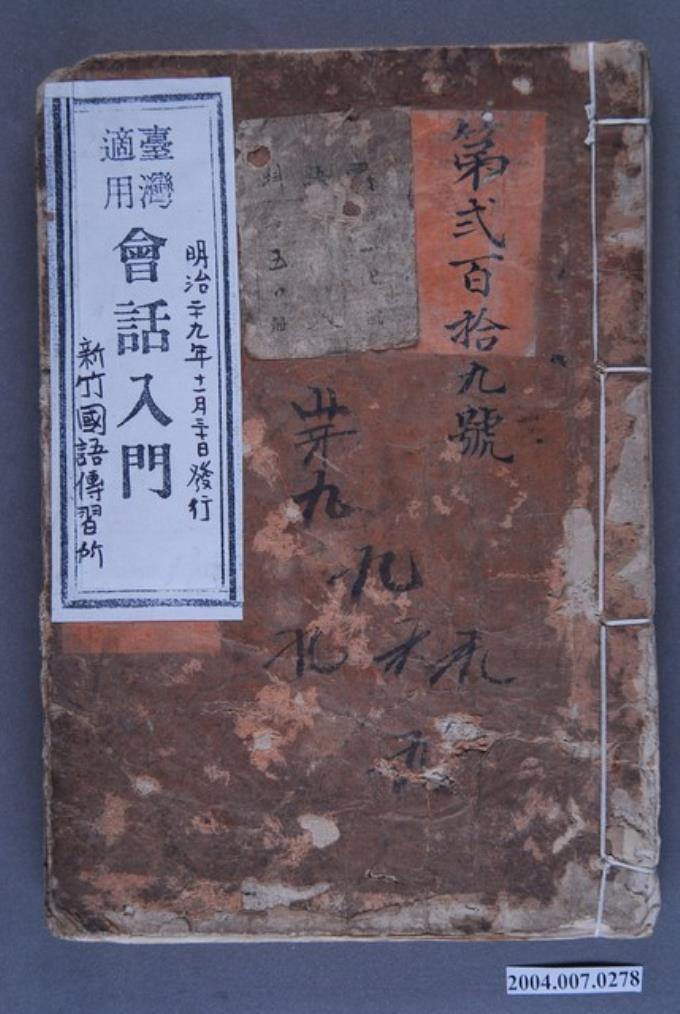 第弐百拾九號
明治二十九年十一月三十日發行
臺灣
適用
會話入門
新竹國語傳習所
九
九
2004.007.0278